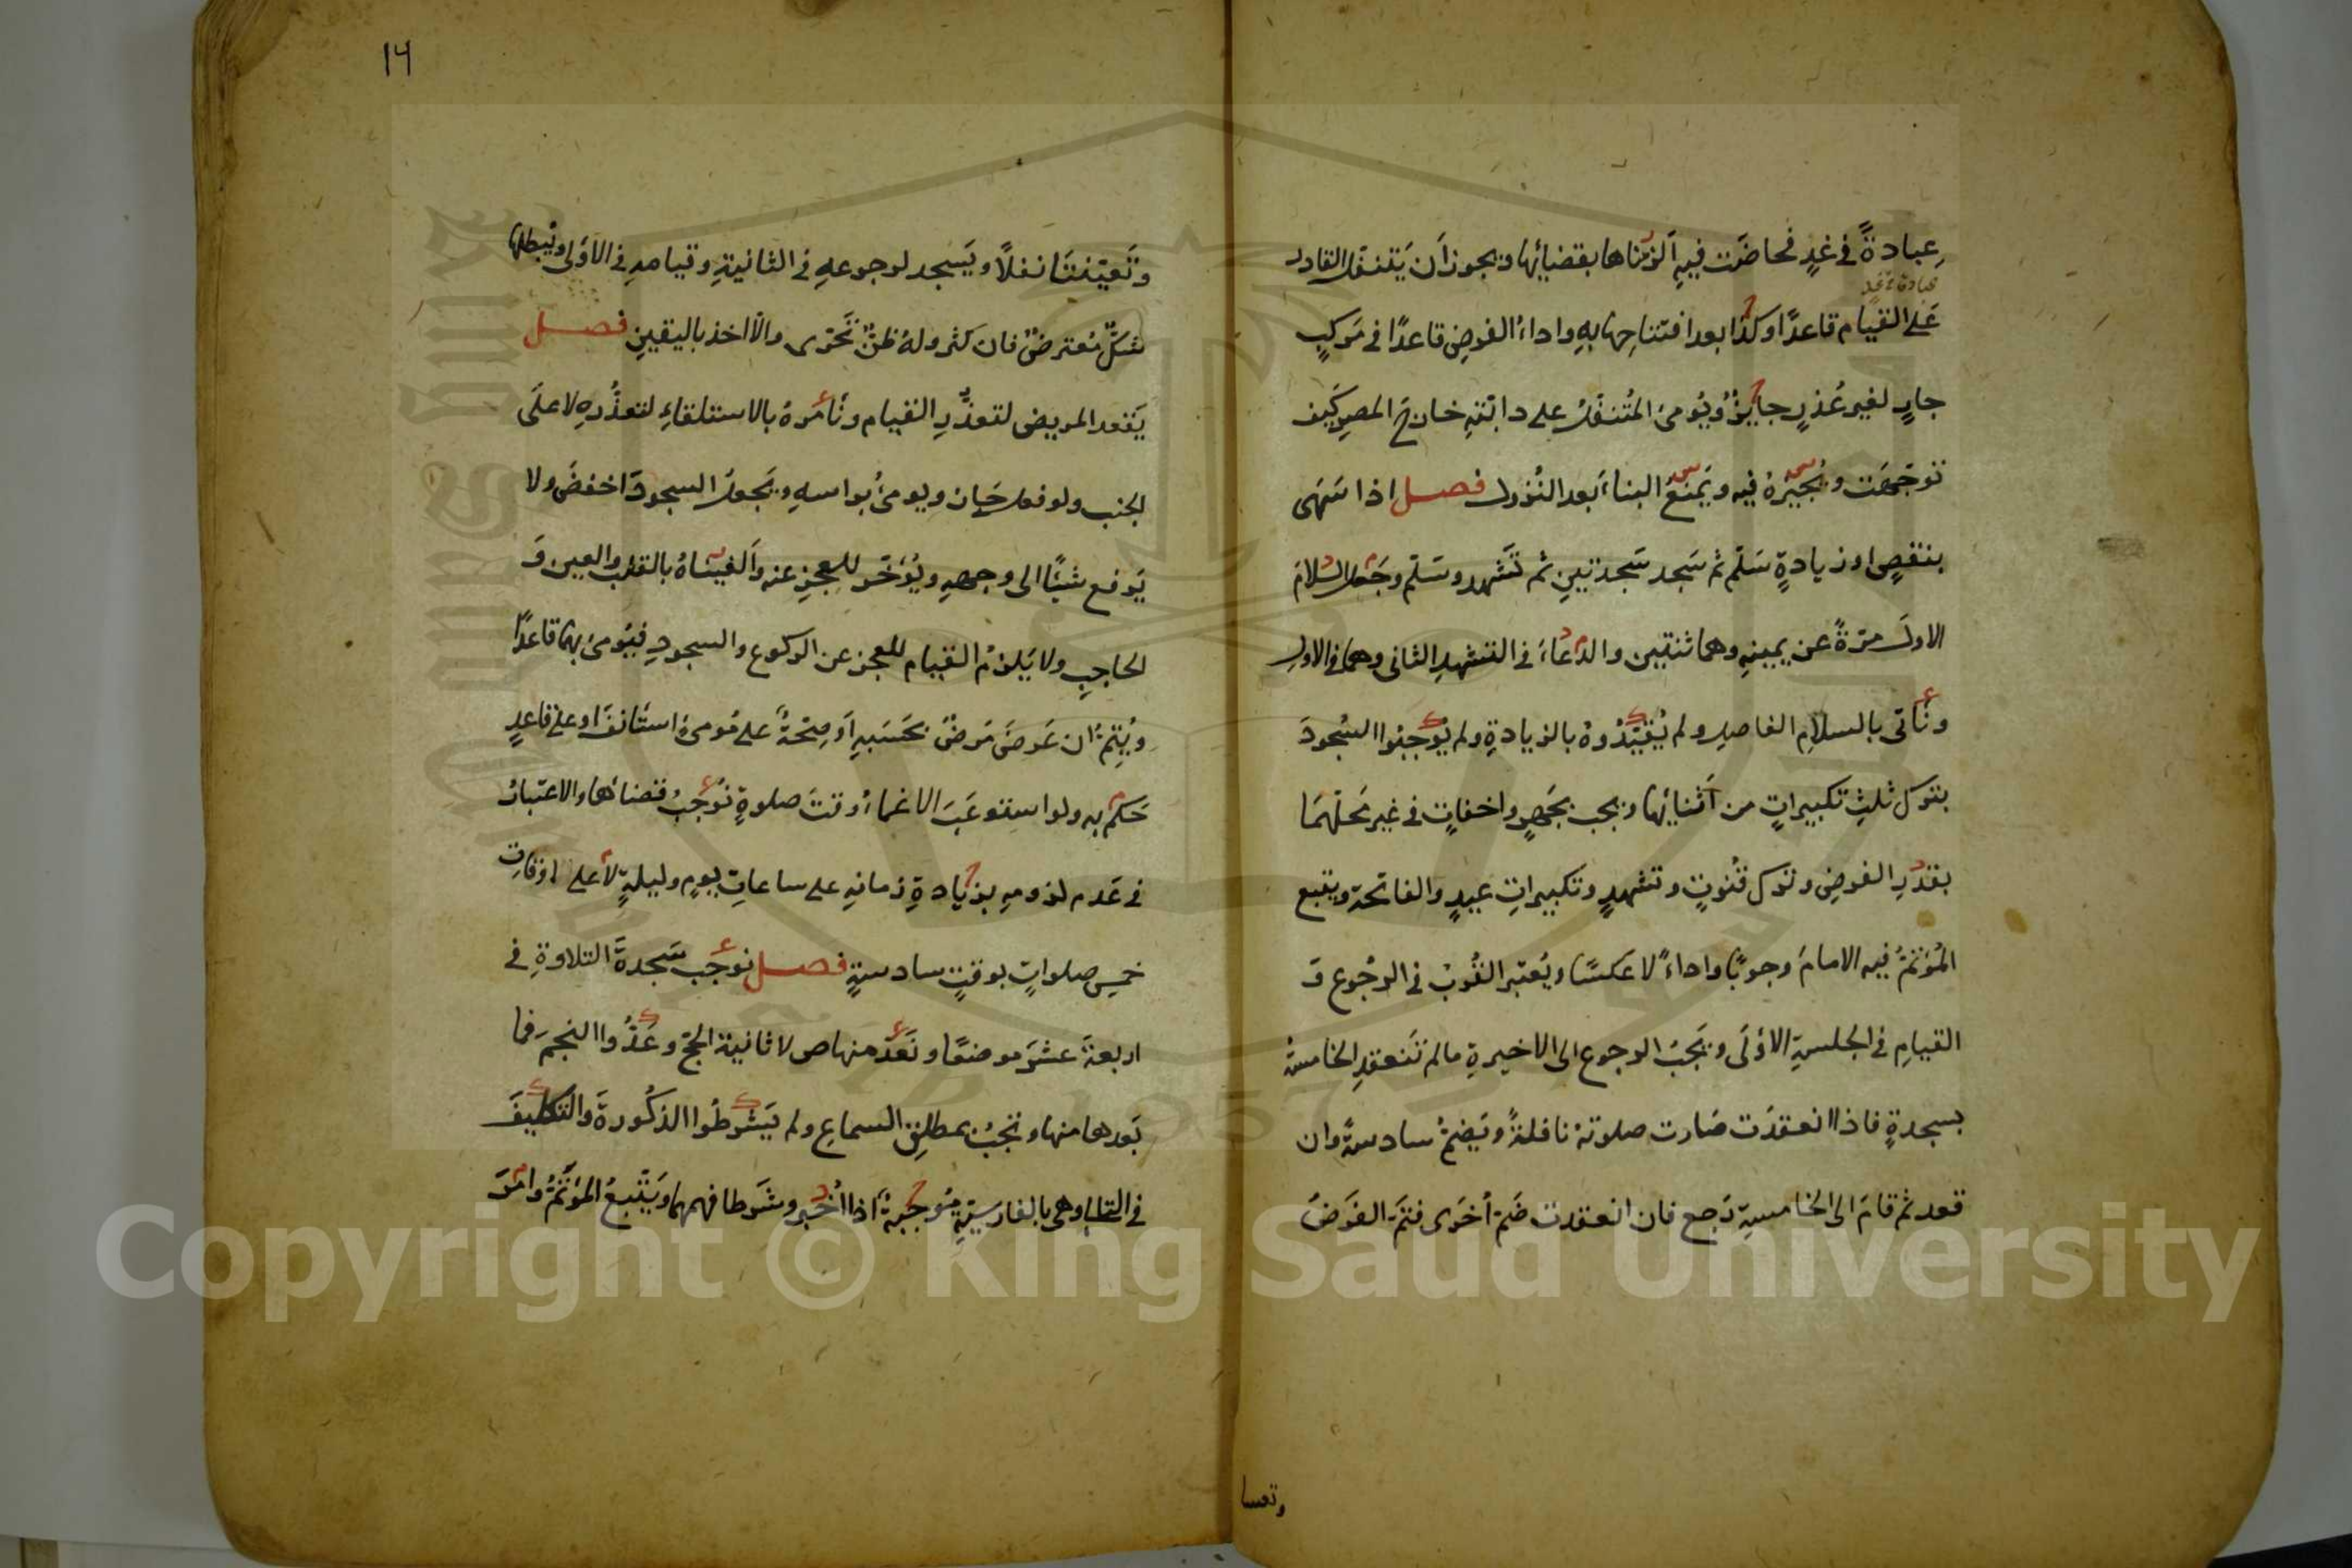 عبادةً فى غدٍ فحاضَت فيهِ اَلزمناها بقضائِها ويجوز اَن يَتنفل القادر
عبادة فى غد
عَلى القيام قاعدًا وكذا بعد افتتاحِها به واداءُ الفرضِ قاعدًا فى مَركبٍ
جارٍ لغير عُذرٍ جايزٌ ويُومئُ المُتنفّلُ على دابّتهِ خارجَ المصرِ كَيف
توجّهَت ونُجيزهُ فيه ويَمنعُ البناءَ بعد النُزول فصل اذا سَهَى
بنقصٍ او زيادةٍ سَلّم ثم سَجد سَجدتينِ ثم تَشهد وسَلّم وجَعل السّلامَ
الاولَ مرّةً عن يمينهِ وهما ثنتين والدّعاءَ فى التشهدِ الثانى وهما فى الاولِ
ونَاتى بالسلامِ الفاصلِ ولم يُقيّدُوهُ بالزيادةِ ولم يُوجبُوا السُجودَ
بتركِ ثلثِ تكبيراتٍ من اَثنائِها ويجب بجَهرٍ واخفاتٍ فى غير مَحلّهمَا
بقدرِ الفرضِ وترك قُنوتٍ وتشهدٍ وتكبيراتِ عيدٍ والفاتحة ويتبع
المُؤتمُّ فيه الامامَ وجوبًا واداءً لا عكسًا ويُعتبر القُربُ فى الرجُوع وَ
القيامِ فى الجلسةِ الاُولَى ويَجبُ الرجوع الى الاخيرةِ مالم تَنعقدِ الخامسةُ
بسجدةٍ فاذا انعقدَت صَارت صلوتهُ نافلةً ويَضمُّ سادسةً وان
قعد ثم قامَ الى الخامسةِ رَجع فان انعقدت ضَمّ اُخرَى فتمَّ الفَرضُ
وتعينتا
١٦
وتَعيّنتَا نفلاً ويَسجد لرجوعهِ فى الثانيةِ وقيامهِ فى الاُولى ويُبطلها
شكٌّ مُعترضٌ فان كثر ولهُ ظنٌّ تَحرّى والاّ اخذ باليقينِ فصل
يَقعد المريض لتعذّرِ القيام ونَأمرهُ بالاستلقاءِ لتعذّرهِ لا علَى
الجنب ولو فعل جَاز ويومئُ براسهِ ويَجعل السجودَ اخفضَ ولا
يَرفع شيئًا الى وجههِ ويُؤخّر للعجزِ عنه واَلغيناهُ بالقلب والعين وَ
الحاجبِ ولا يَلزمُ القيام للعجز عن الركوع والسجودِ فيُومئُ بهما قاعدًا
ويُتِمّ ان عَرضَ مَرضٌ بحَسَبهِ اَو صِحّةٌ على مُومئٍ استَأنفَ او على قاعدٍ
حَكم به ولو استوعَبَ الاغماءُ وقتَ صلوةٍ نُوجبُ قضائها والاعتبارُ
فى عَدم لزومهِ بزيادةِ زمانهِ على ساعاتِ يومٍ وليلةٍ لا على اوقاتِ
خمسِ صلواتٍ بوقتٍ سادسةٍ فصل نُوجب سَجدةَ التلاوةِ فى
اربعةَ عشرَ موضعًا ونَعدّ منها ص لا ثانيةَ الحجّ وعَدُّوا النجمَ فما
بَعدها منها وتجبُ بمطلقِ السماعِ ولم يَشرطُوا الذكُورةَ والتكليفَ
فى التالى وهى بالفارسيّةِ مُوجبةٌ اذا اُخبر وشَرطا فهمها ويَتبعُ المُؤتمُّ وامَرَ